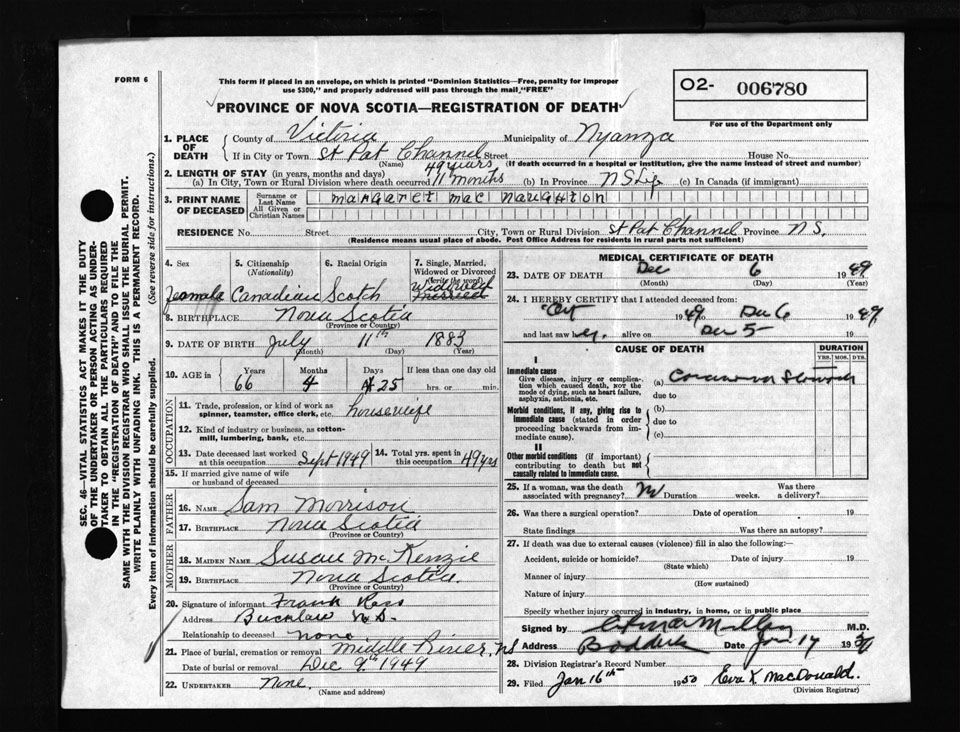 FORM 6
This form if placed in an envelope, on which is printed "Dominion Statistics—Free, penalty for improper
use $300," and properly addressed will pass through the mail "FREE"
PROVINCE OF NOVA SCOTIA—REGISTRATION OF DEATH
O2- 006780
For use of the Department only
SEC. 46—VITAL STATISTICS ACT MAKES IT THE DUTY
OF THE UNDERTAKER OR PERSON ACTING AS UNDER-
TAKER TO OBTAIN ALL THE PARTICULARS REQUIRED
IN THE "REGISTRATION OF DEATH" AND TO FILE THE
SAME WITH THE DIVISION REGISTRAR WHO SHALL ISSUE THE BURIAL PERMIT.
WRITE PLAINLY WITH UNFADING INK. THIS IS A PERMANENT RECORD.
Every item of information should be carefully supplied. (See reverse side for instructions.)
1. PLACE OF DEATH
County of Victoria Municipality of Nyanza
If in City or Town St Pat Channel Street House No.
(Name) (If death occurred in a hospital or institution, give the name instead of street and number)
2. LENGTH OF STAY (in years, months and days) 49 years
(a) In City, Town or Rural Division where death occurred 11 months (b) In Province N S Life (c) In Canada (if immigrant)
3. PRINT NAME OF DECEASED
Surname or Last Name margaret mac naughton
All Given or Christian Names
RESIDENCE No. Street City, Town or Rural Division St Pat Channel Province N S.
(Residence means usual place of abode. Post Office Address for residents in rural parts not sufficient)
4. Sex 5. Citizenship (Nationality) 6. Racial Origin 7. Single, Married, Widowed or Divorced (Write the word)
Female Canadian Scotch Widowed married
8. BIRTHPLACE Nova Scotia
(Province or Country)
9. DATE OF BIRTH July 11th 1883
(Month) (Day) (Year)
10. AGE in Years Months Days If less than one day old
66 4 25 hrs. or min.
OCCUPATION
11. Trade, profession, or kind of work as spinner, teamster, office clerk, etc. housewife
12. Kind of industry or business, as cotton-mill, lumbering, bank, etc.
13. Date deceased last worked at this occupation Sept 1949 14. Total yrs. spent in this occupation 49 yrs
15. If married give name of wife or husband of deceased
FATHER
16. NAME Sam Morrison
17. BIRTHPLACE Nova Scotia
(Province or Country)
MOTHER
18. MAIDEN NAME Susan McKenzie
19. BIRTHPLACE Nova Scotia
(Province or Country)
20. Signature of informant Frank Ross
Address Bucklaw N.S.
Relationship to deceased none
21. Place of burial, cremation or removal Middle River, NS
Date of burial or removal Dec 9th 1949
22. UNDERTAKER None.
(Name and address)
MEDICAL CERTIFICATE OF DEATH
23. DATE OF DEATH Dec 6 1949
(Month) (Day) (Year)
24. I HEREBY CERTIFY that I attended deceased from:
Oct 1949 to Dec 6 1949
and last saw her alive on Dec 5 19
CAUSE OF DEATH DURATION
YRS. MOS. DYS.
I
Immediate cause
Give disease, injury or complication which caused death, NOT the mode of dying, such as heart failure, asphyxia, asthenia, etc.
(a) Carcinoma Stomach
due to
Morbid conditions, if any, giving rise to immediate cause (stated in order proceeding backwards from immediate cause).
(b)
due to
(c)
II
Other morbid conditions (if important) contributing to death but not causally related to immediate cause.
25. If a woman, was the death associated with pregnancy? No Duration weeks. Was there a delivery?
26. Was there a surgical operation? Date of operation 19
State findings Was there an autopsy?
27. If death was due to external causes (violence) fill in also the following:—
Accident, suicide or homicide? Date of injury 19
(State which)
Manner of injury
(How sustained)
Nature of injury
Specify whether injury occurred in industry, in home, or in public place
Signed by M.D.
Address Baddeck Date Jan 17 1950
28. Division Registrar's Record Number
29. Filed Jan 16th 1950 Eva K MacDonald.
(Division Registrar)